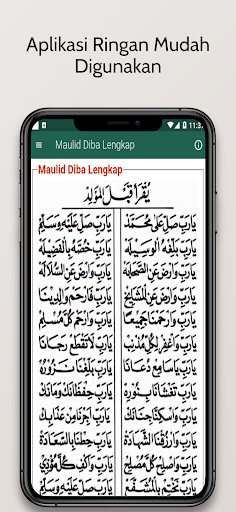 Aplikasi Ringan Mudah
Digunakan
11:3
Maulid Diba Lengkap
Maulid Diba Lengkap
يُقْرَأُ قَبْلَ الْمَوْلِدِ
يَارَبِّ صَلِّ عَلَى مُحَمَّدْ يَارَبِّ صَلِّ عَلَيْهِ وَسَلِّمْ
يَارَبِّ بَلِّغْهُ الْوَسِيْلَهْ يَارَبِّ خُصَّهُ بِالْفَضِيْلَهْ
يَارَبِّ وَارْضَ عَنِ الصَّحَابَهْ يَارَبِّ وَارْضَ عَنِ السُّلَالَهْ
يَارَبِّ وَارْضَ عَنِ الْمَشَايِخْ يَارَبِّ فَارْحَمْ وَالِدِيْنَا
يَارَبِّ وَارْحَمْنَا جَمِيْعًا يَارَبِّ وَارْحَمْ كُلَّ مُسْلِمْ
يَارَبِّ وَاغْفِرْ لِكُلِّ مُذْنِبْ يَارَبِّ لَا تَقْطَعْ رَجَانَا
يَارَبِّ يَاسَامِعْ دُعَانَا يَارَبِّ بَلِّغْنَا نَزُوْرُهْ
يَارَبِّ تَغْشَانَا بِنُوْرِهْ يَارَبِّ حِفْظَانَكْ وَأَمَانَكْ
يَارَبِّ وَاسْكِنَّا جِنَانَكْ يَارَبِّ أَجِرْنَا مِنْ عَذَابِكْ
يَارَبِّ وَارْزُقْنَا الشَّهَادَهْ يَارَبِّ حِطْنَا بِالسَّعَادَهْ
يَارَبِّ وَاصْلِحْ كُلَّ مُصْلِحْ يَارَبِّ وَاكْفِ كُلَّ مُؤْذِيْ
يَارَبِّ نَخْتِمْ بِالْمُشَفَّعْ يَارَبِّ صَلِّ عَلَيْهِ وَسَلِّمْ